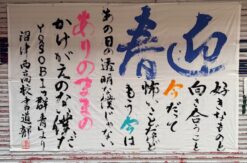 迎春
好きなものと
向き合うこと
今だって
怖いことだけど
もう今は
あの日の透明な僕じゃない
ありのままの
かけがえのない僕だ
YOASOBI 群青より
沼津西高校書道部